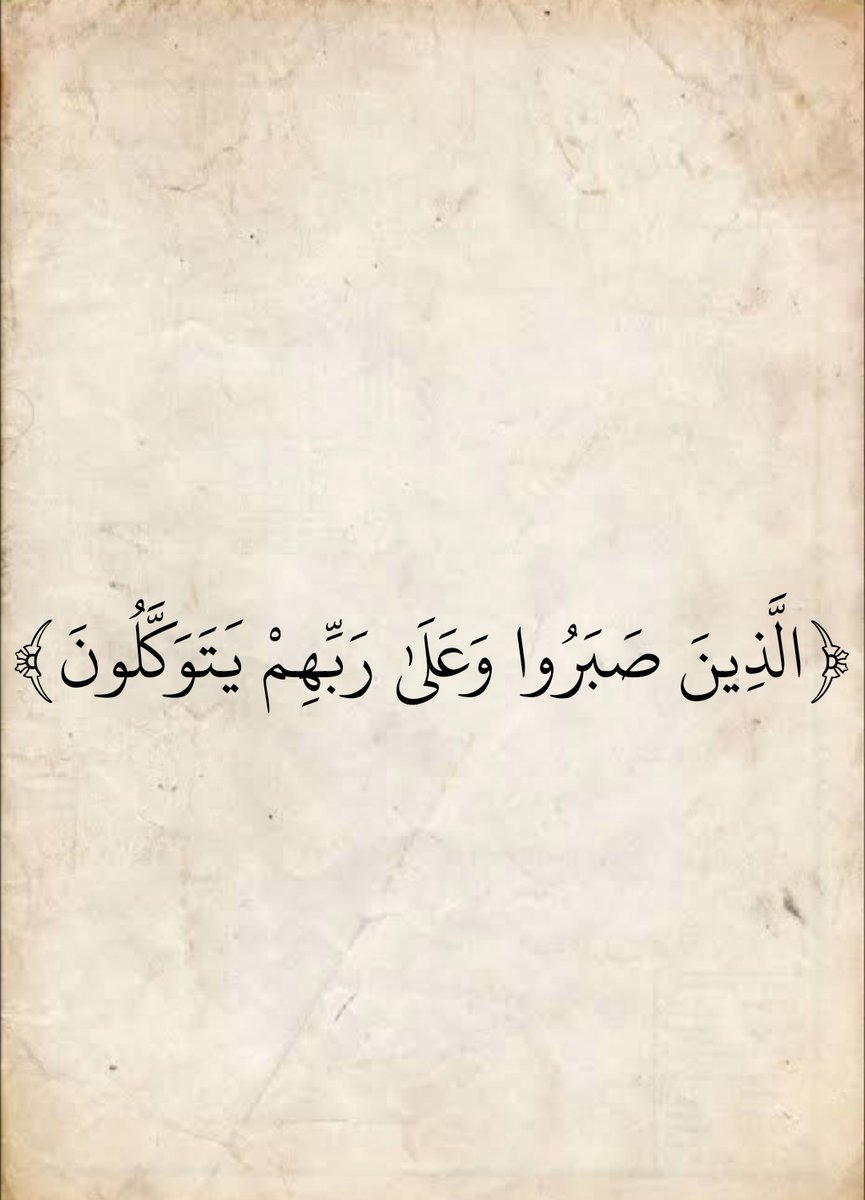 ﴿الَّذِينَ صَبَرُوا وَعَلَىٰ رَبِّهِمْ يَتَوَكَّلُونَ﴾